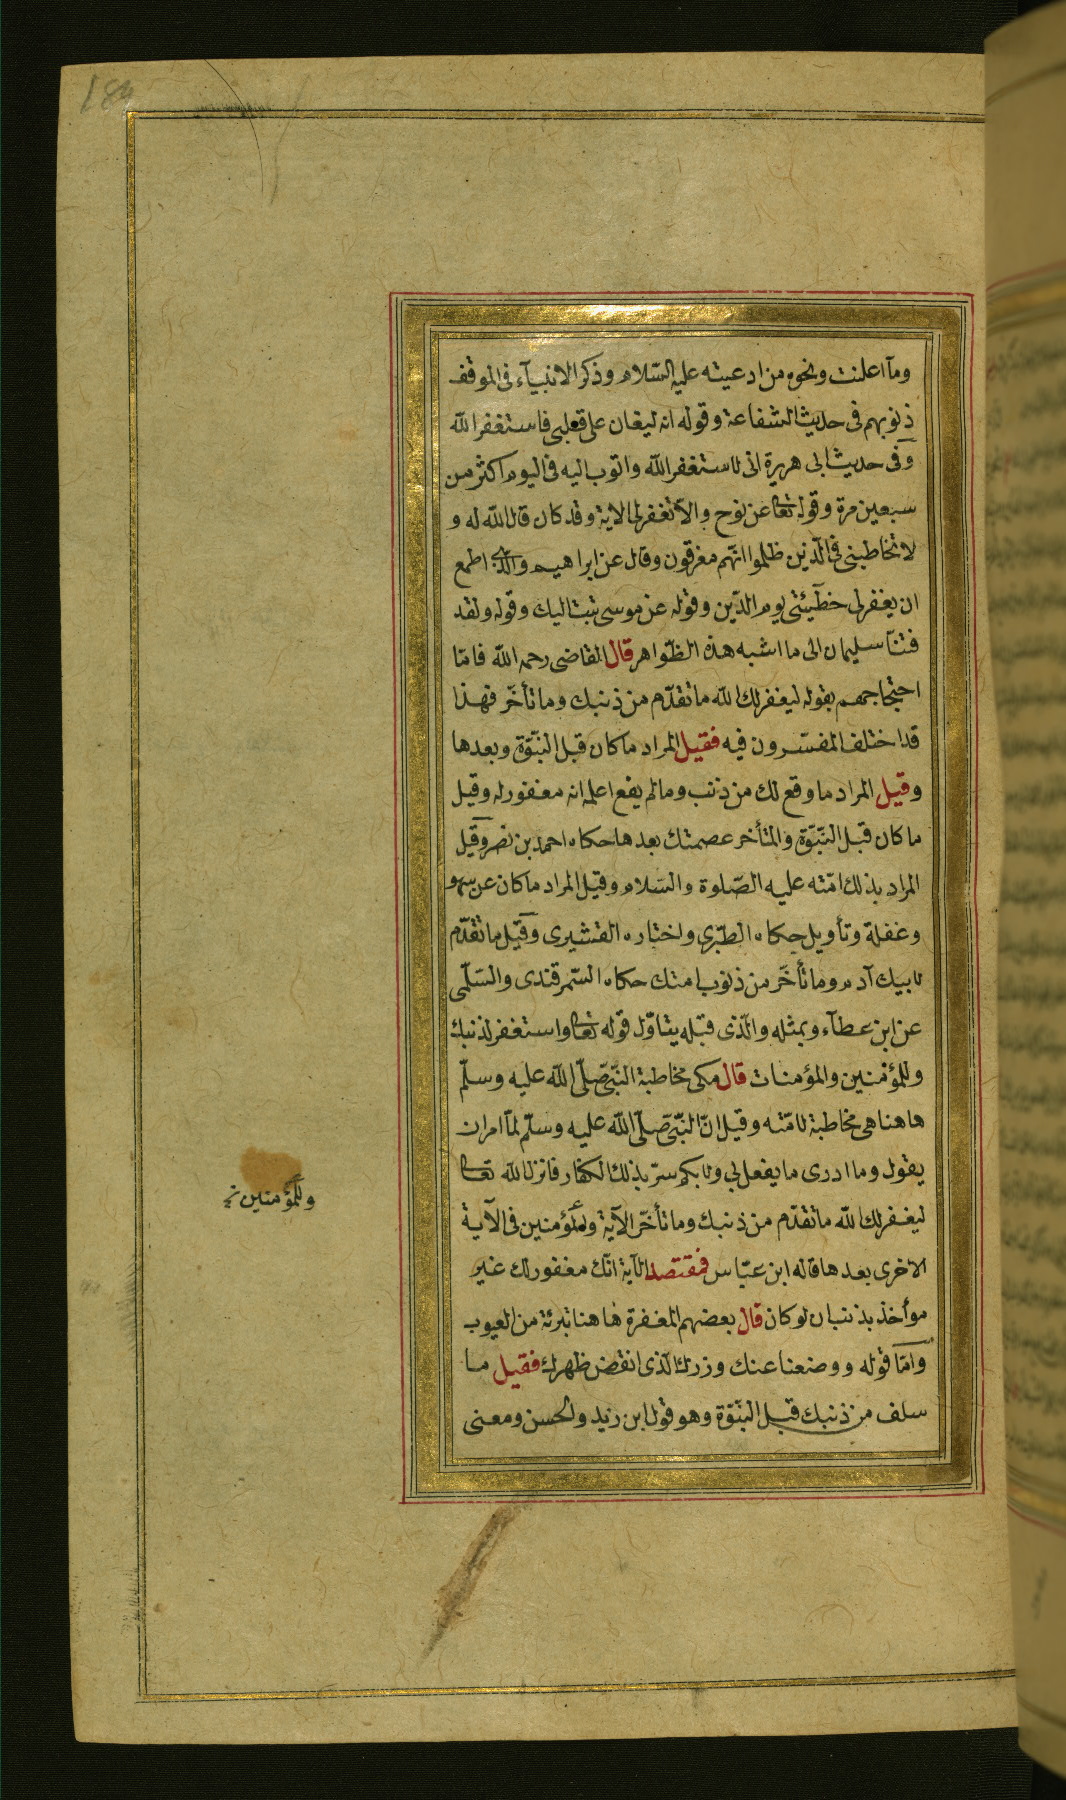 184
ومآ اعلنت ونحوه من ادعيته عليه السّلام وذكر الانبيآء فى الموقف
ذنوبهم فى حديث الشفاعة وقوله انه ليغان على قلبى فاستغفر الله
وفى حديث ابى هريرة انى لاستغفر الله واتوب اليه فى اليوم اكثر من
سبعين مرة وقوله تعا عن نوح والّا تغفر لى الاية وقد كان قال الله له و
لا تخاطبنى فى الّذين ظلموا انّهم مغرقون وقال عن ابراهيم والّذى اطمع
ان يغفر لى خطيئتى يوم الدّين وقوله عن موسى تبت اليك وقوله ولقد
فتنّا سليمان الى ما اشبه هذه الظّواهر قال القاضى رحمه الله فامّا
احتجاجهم بقوله ليغفر لك الله ما تقدّم من ذنبك وما تأخّر فهذا
قد اختلف المفسّرون فيه فقيل المراد ما كان قبل النبّوّة وبعدها
وقيل المراد ما وقع لك من ذنب وما لم يقع اعلمه انه مغفور له وقيل
ما كان قبل النّبّوّة والمتأخر عصمتك بعدها حكاه احمد بن نصر وقيل
المراد بذلك امّته عليه الصّلوة والسّلام وقيل المراد ما كان عن سهو
وغفلة وتأويل حكاه الطّبرى واختاره القشيرى وقيل ما تقدّم
لابيك آدم وما تأخّر من ذنوب امتك حكاه السّمرقندى والسّلمى
عن ابن عطآء وبمثله والّذى قبله يتأوّل قوله تعا واستغفر لذنبك
وللمؤمنين والمؤمنات قال مكى مخاطبة النّبىّ صلّى الله عليه وسلّم
هاهنا هى مخاطبة لامّته وقيل انّ النّبىّ صلّى الله عليه وسلّم لمّا امر ان
يقول وما ادرى ما يفعل بى ولا بكم سرّ بذلك الكفار فانزل الله تعا
ليغفر لك الله ما تقدّم من ذنبك وما تأخّر الآية وللمؤمنين فى الآية
الاخرى بعدها قاله ابن عبّاس فمقتصد الآية انّك مغفور لك غير
مؤاخذ بذنب ان لو كان قال بعضهم المغفرة هاهنا تبرئة من العيوب
وامّا قوله ووضعنا عنك وزرك الّذى انقض ظهرك فقيل ما
سلف من ذنبك قبل النبّوّة وهو قول ابن زيد والحسن ومعنى
وللمؤمنين